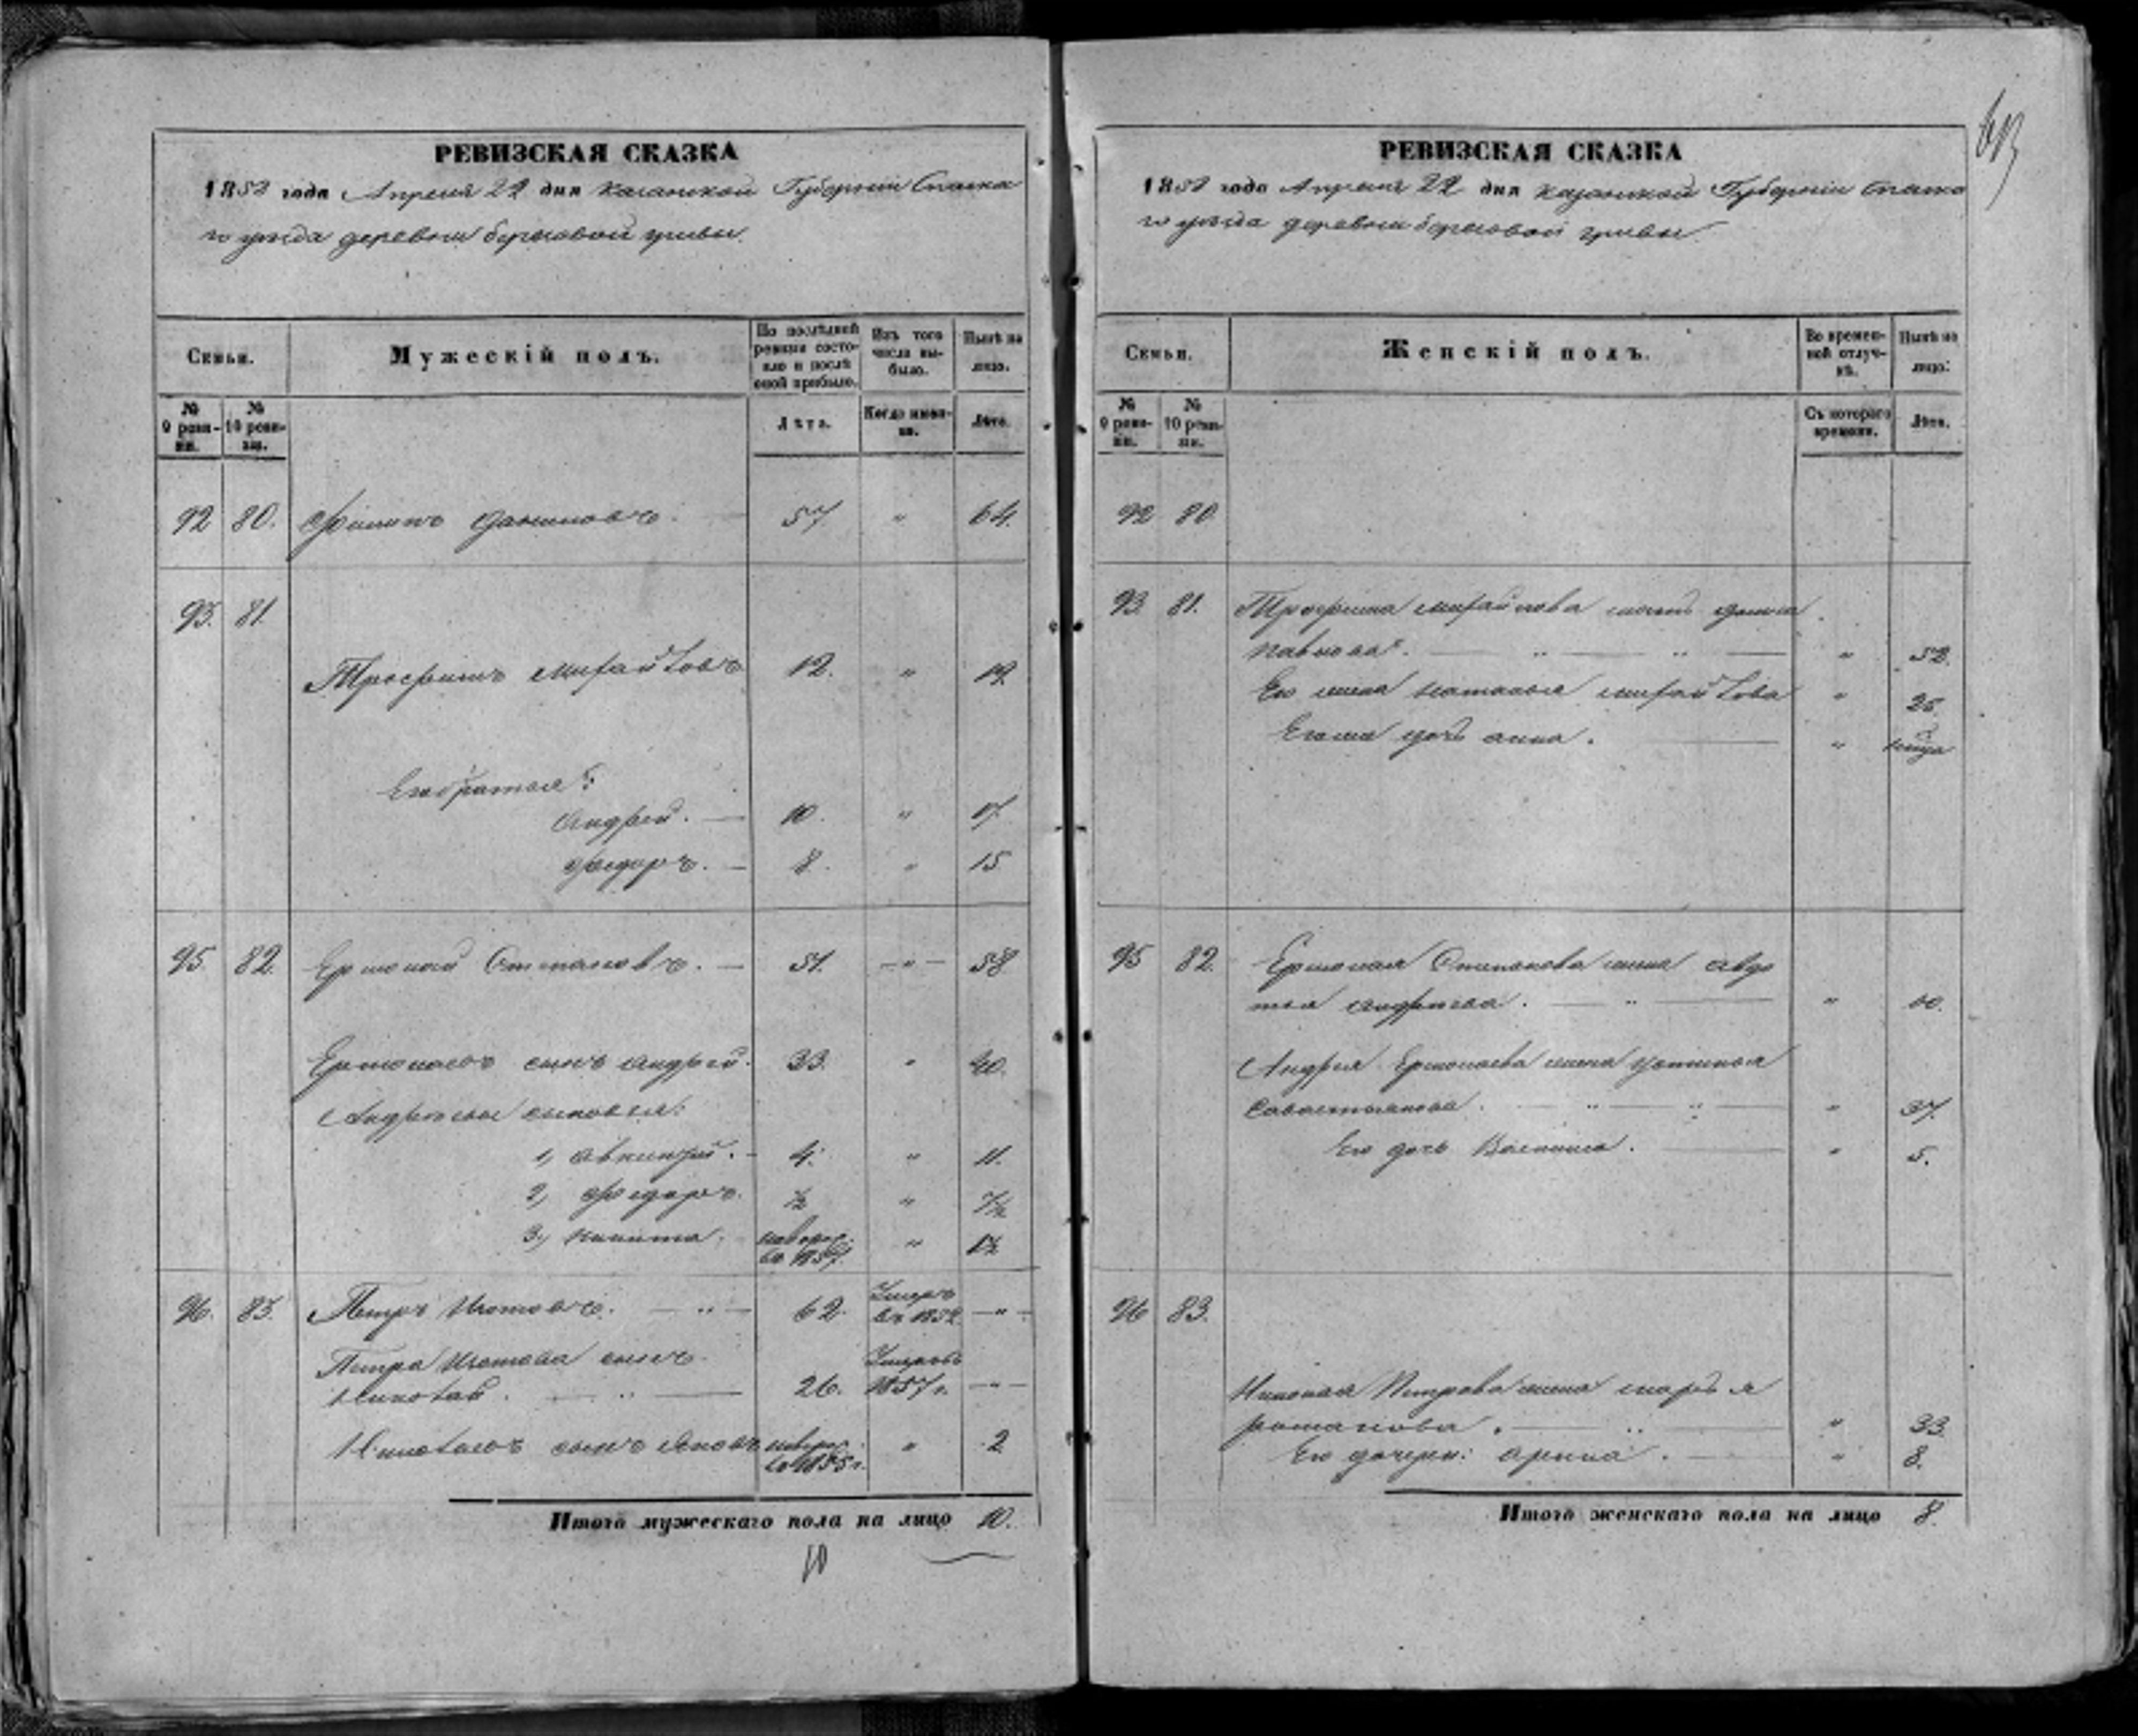 РЕВИЗСКАЯ СКАЗКА
1858 года Апреля 22 дня Казанской Губернии Спаска
го уезда деревни гривы
Семьи.
Мужескій полъ.
По послѣдней ревизіи состояло и послѣ оной прибыло.
Изъ того числа выбыло.
Нынѣ на лицо.
№ 9 ревизіи.
№ 10 ревизіи.
Лѣта.
Когда именно.
Лѣта.
92 80. Филипъ Даниловъ. 57 " 64.
93. 81.
Трофимъ Михайловъ 12. " 19.
Его братья:
Андрей. 10. " 17.
Федоръ. 8. " 15
95. 82. Ермолай Степановъ. 51. " 58
Ермолаевъ сынъ Андрей. 33. " 40.
Андреевы сыновья:
1, 4. " 11.
2, Федоръ. ½ " 7½
3, Никита. новорож. въ 1857. " 1½
96. 83. Петръ Изотовъ. 62. Умеръ въ 1852 "
Петра Изотова сынъ
Николай. 26. Умеръ въ 1857 г. "
Николаевъ сынъ новорож. въ 1855 г. " 2
Итого мужескаго пола на лицо 10.
10
РЕВИЗСКАЯ СКАЗКА
1858 года Апреля 22 дня Казанской Губернии Спаска
го уезда деревни гривы
Семьи.
Женскій полъ.
Во временной отлучкѣ.
Нынѣ на лицо.
№ 9 ревизіи.
№ 10 ревизіи.
Съ котораго времени.
Лѣта.
92 80
93. 81. Трофима Михайлова мать
Павлова. " 52.
Его жена Наталья Михайлова " 25.
Его же дочь Анна. "
95 82. Ермолая Степанова жена Авдо
тья Андреева. " 60.
Андрея Ермолаева жена Устинья
Савастьянова. " 37.
Его дочь Василиса. " 5.
96 83.
Николая Петрова жена Марья
Романова. " 33.
Его дочери: Арина. " 8.
Итого женскаго пола на лицо 8.